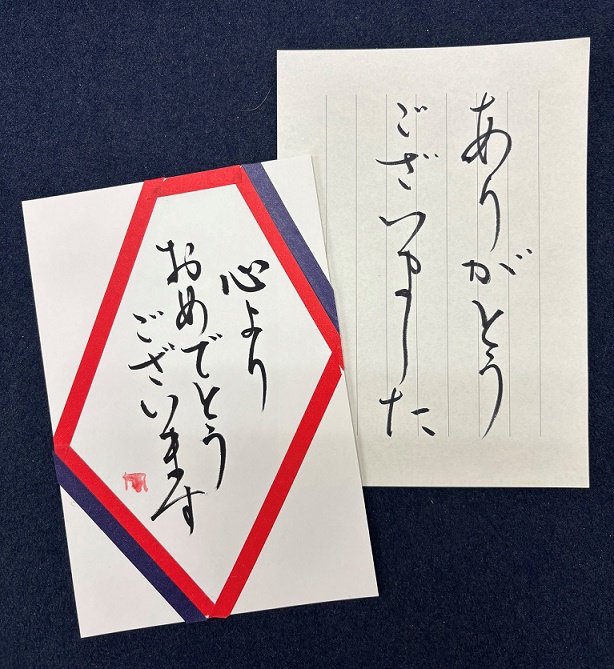 ありがとう
ございました
心より
おめでとう
ございます